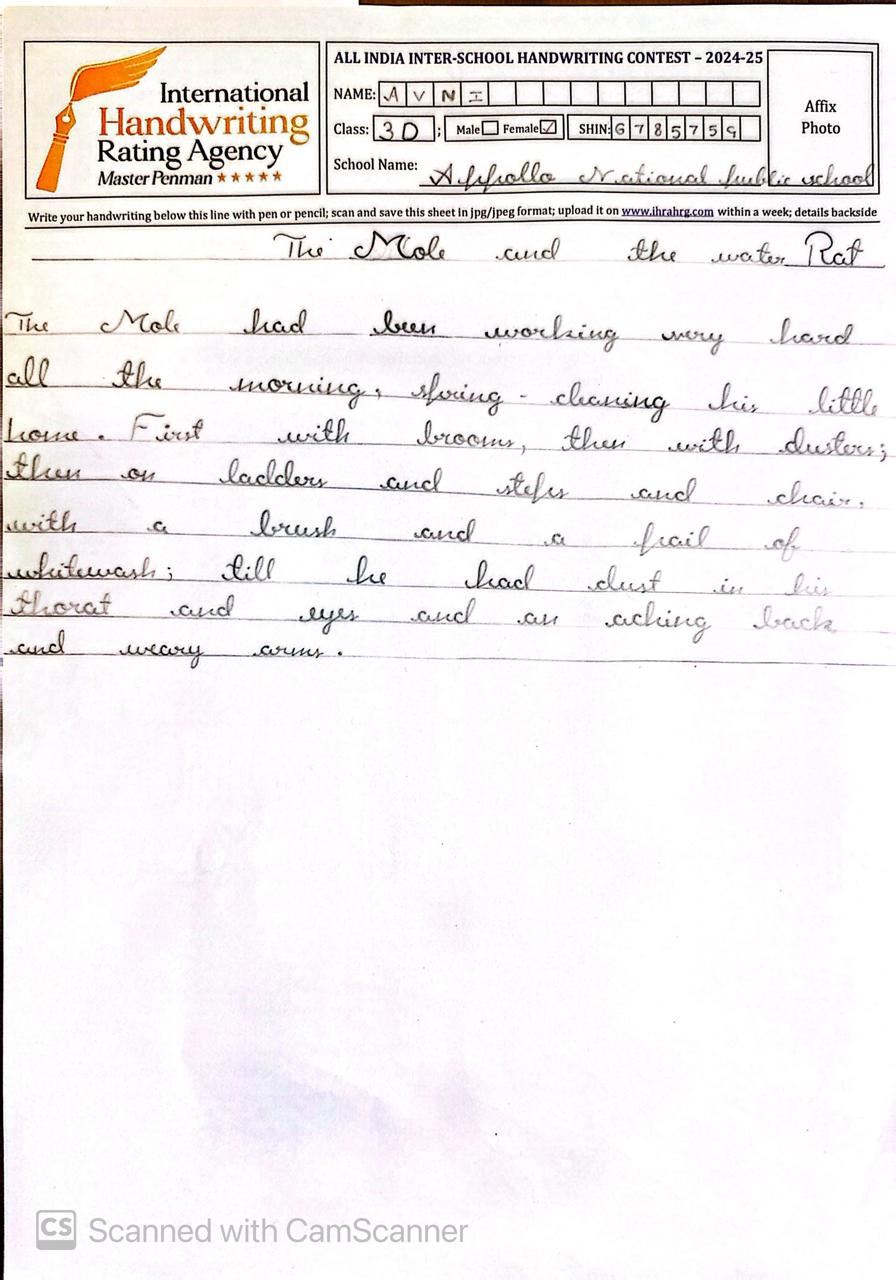 ALL INDIA INTER-SCHOOL HANDWRITING CONTEST – 2024-25
International
Handwriting
Rating Agency
Master Penman ★★★★★
NAME: A V N I
Class: 3 D ; Male Female ✓ SHIN: 6 7 8 5 7 5 9
School Name: Appollo National public school
Affix
Photo
Write your handwriting below this line with pen or pencil; scan and save this sheet in jpg/jpeg format; upload it on www.ihrahrg.com within a week; details backside
The Mole and the water Rat
The Mole had been working very hard
all the morning, spring - cleaning his little
home. First with brooms, then with dusters;
then on ladders and steps and chair,
with a brush and a pail of
whitewash; till he had dust in his
thorat and eyes and an aching back
and weary arms.
CS Scanned with CamScanner